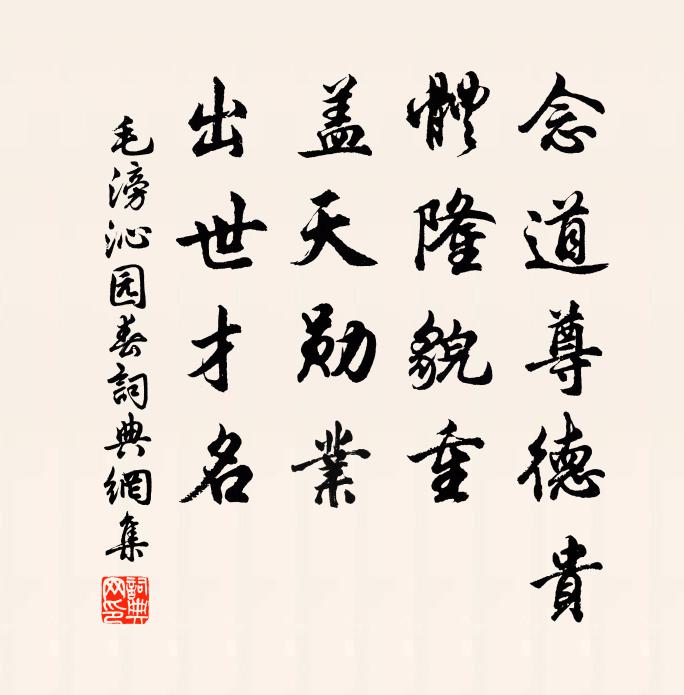 念道尊德貴
體隆貌重
盖天勛業
出世才名
毛滂沁园春詞典網集
詞典网印